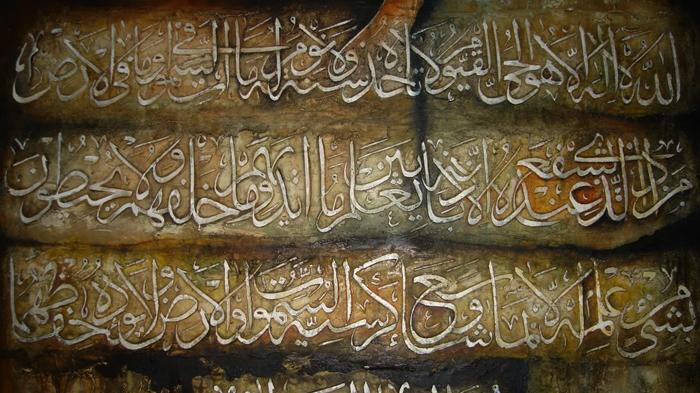 الله لا إله إلا هو الحي القيوم لا تأخذه سنة ولا نوم له ما في السموات وما في الأرض
من ذا الذي يشفع عنده إلا بإذنه يعلم ما بين أيديهم وما خلفهم ولا يحيطون
بشيء من علمه إلا بما شاء وسع كرسيه السموات والأرض ولا يؤده حفظهما